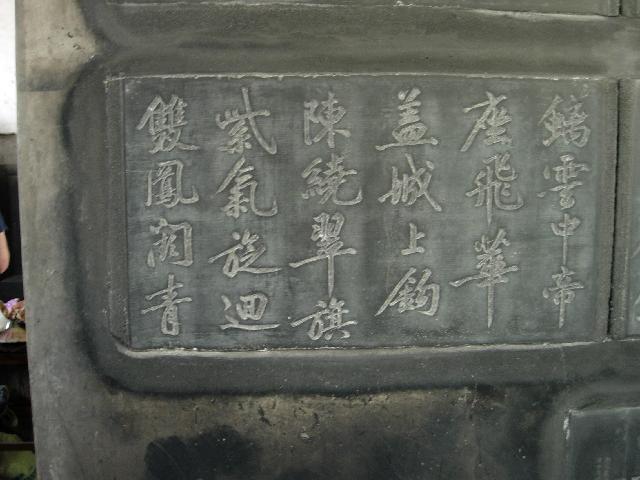 鏑雲中帝
座飛華
盖城上鈎
陳繞翠旗
紫氣旋迴
雙鳳闕青